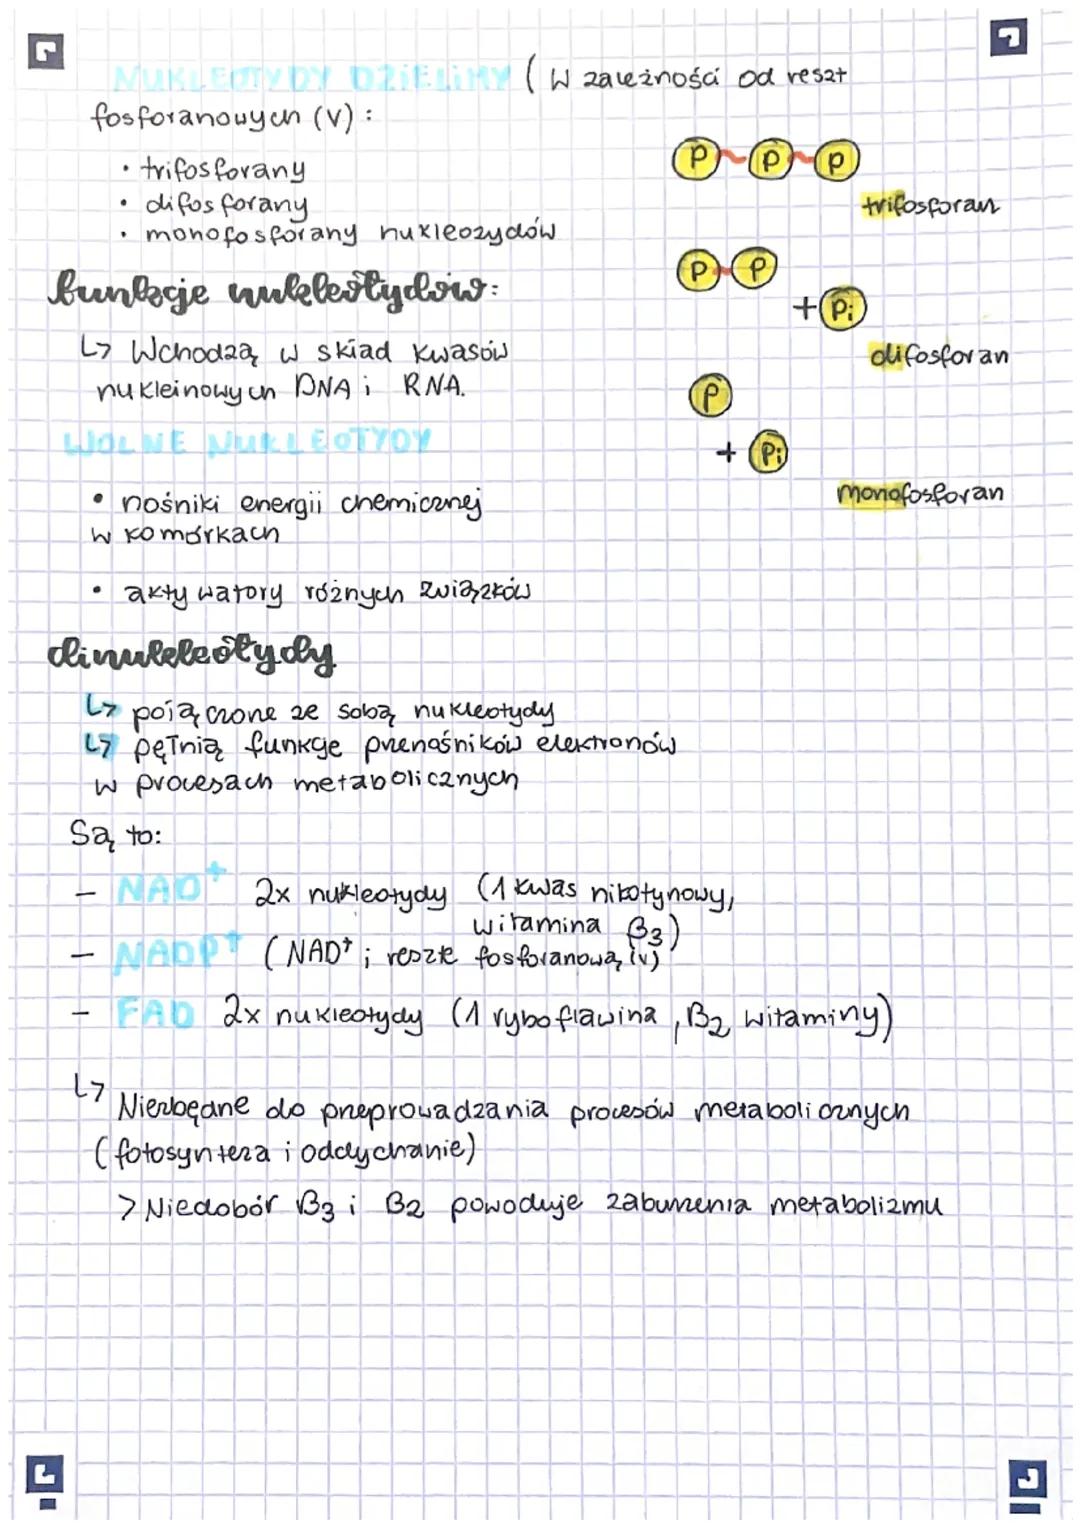 NUKLEOTYDY DZIELIMY ( W zależności od reszt
fosforanowych (V) :
• trifosforany
• difosforany
• monofosforany nukleozydów
P~P~P
trifosforan
P~P
+ Pi
difosforan
P
+ Pi
monofosforan
funkcje nukleotydów:
↳ Wchodzą w skład kwasów
nukleinowych DNA i RNA.
WOLNE NUKLEOTYDY
• nośniki energii chemicznej
w komórkach
• aktywatory różnych związków
dinukleotydy
↳ połączone ze sobą nukleotydy
↳ pełnią funkcje przenośników elektronów
w procesach metabolicznych
Są to:
– NAD⁺ 2x nukleotydy (1 kwas nikotynowy,
witamina B₃)
– NADP⁺ (NAD⁺ i resztę fosforanową (v)
– FAD 2x nukleotydy (1 ryboflawina, B₂ witaminy)
↳ Niezbędne do przeprowadzania procesów metabolicznych
(fotosynteza i oddychanie)
> Niedobór B₃ i B₂ powoduje zaburzenia metabolizmu